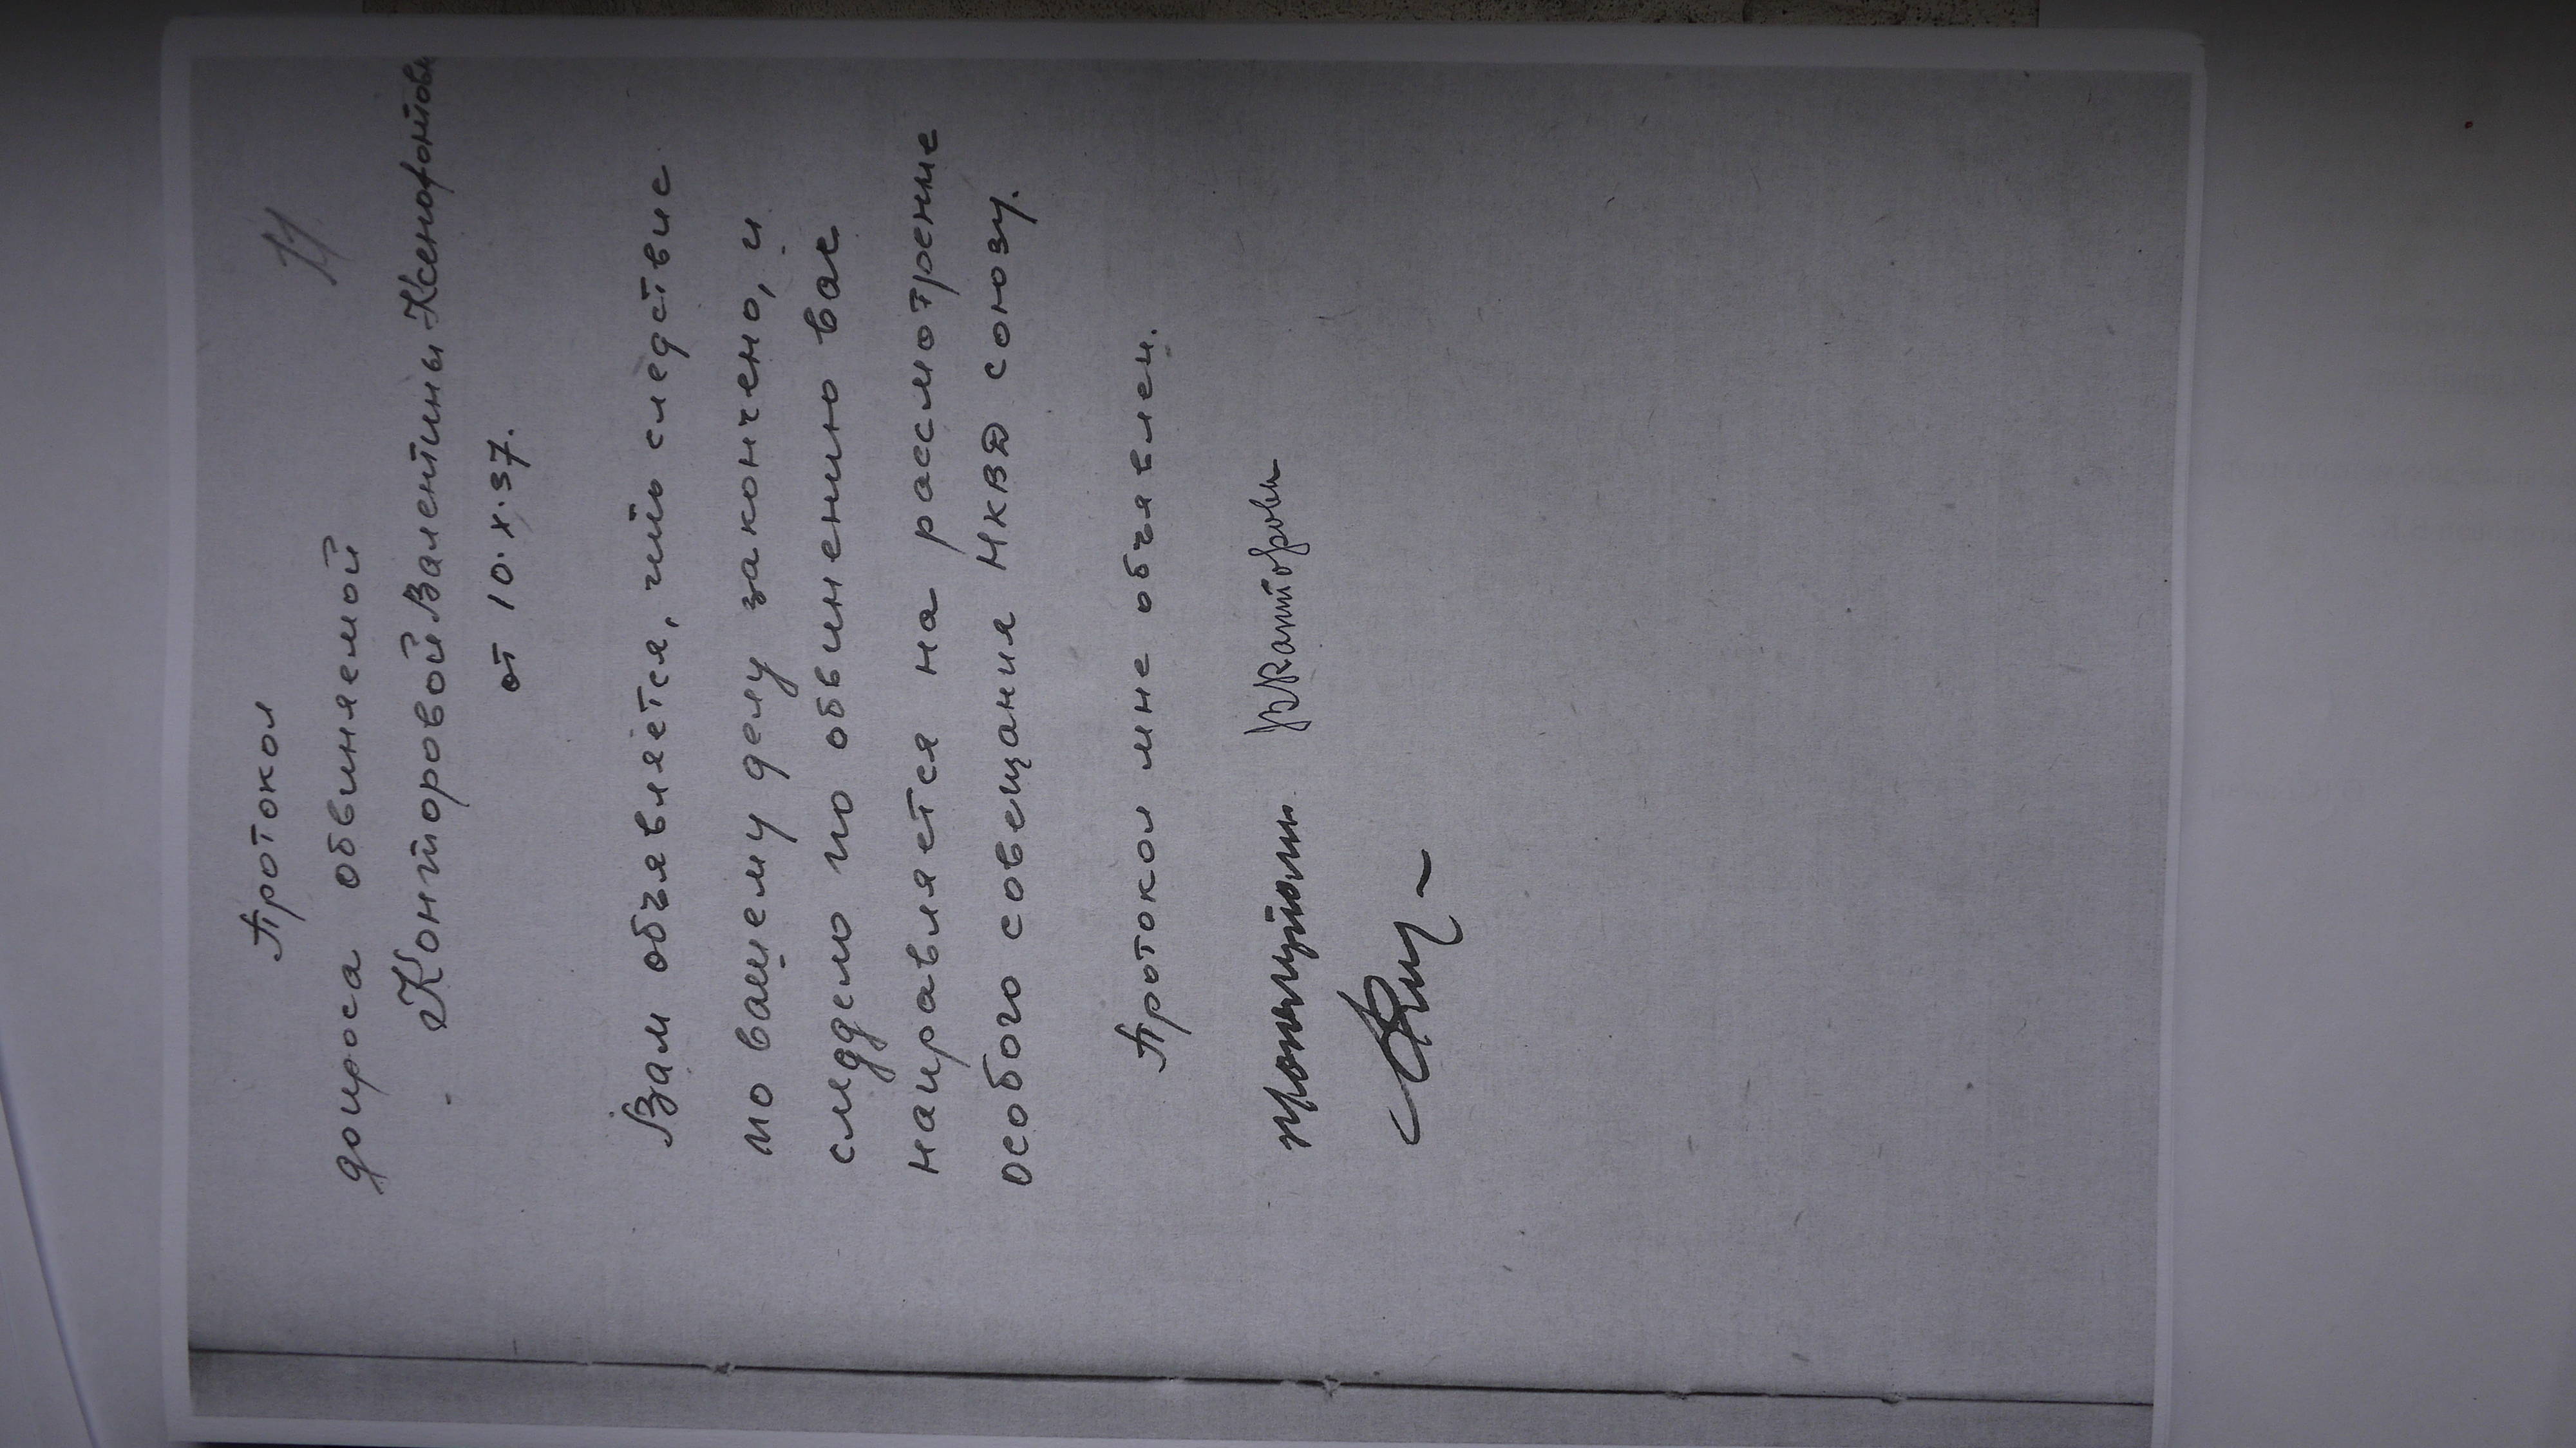 11
Протокол
допроса обвиняемой
Конторовой Валентины Ксенофонтовн
от 10.X.37.
Вам объявляется, что следствие
по вашему делу закончено, и
следдело по обвинению вас
направляется на рассмотрение
особого совещания НКВД союзу.
Протокол мне объявлен.
ВКанторова